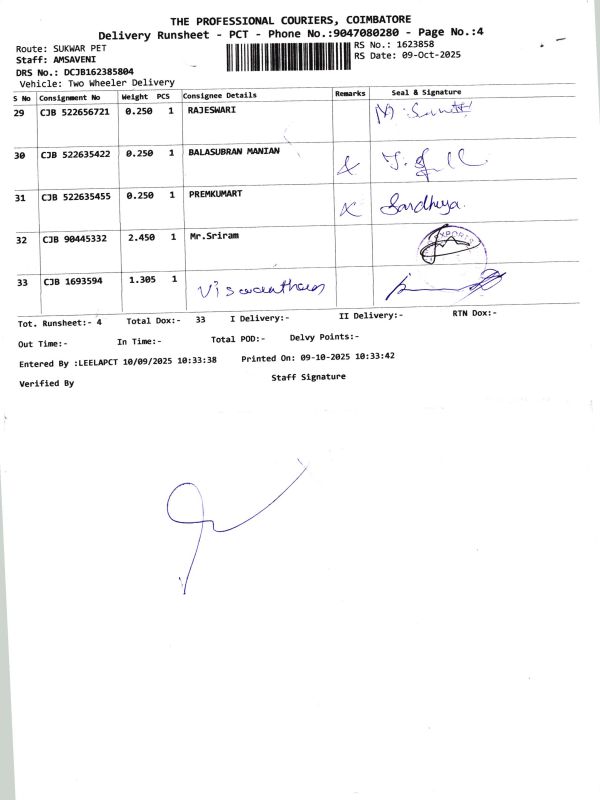 THE PROFESSIONAL COURIERS, COIMBATORE
Delivery Runsheet - PCT - Phone No.:9047080280 - Page No.:4
Route: SUKWAR PET
RS No.: 1623858
Staff: AMSAVENI
RS Date: 09-Oct-2025
DRS No.: DCJB162385804
Vehicle: Two Wheeler Delivery
S No Consignment No Weight PCS Consignee Details Remarks Seal & Signature
29 CJB 522656721 0.250 1 RAJESWARI
30 CJB 522635422 0.250 1 BALASUBRAN MANIAN
31 CJB 522635455 0.250 1 PREMKUMART Sandhiya.
32 CJB 90445332 2.450 1 Mr.Sriram EXPORTS
33 CJB 1693594 1.305 1 Viswanathan
Tot. Runsheet:- 4 Total Dox:- 33 I Delivery:- II Delivery:- RTN Dox:-
Out Time:- In Time:- Total POD:- Delvy Points:-
Entered By :LEELAPCT 10/09/2025 10:33:38 Printed On: 09-10-2025 10:33:42
Verified By Staff Signature